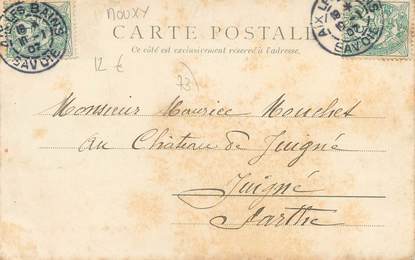 MOUXY
CARTE POSTALE
Ce côté est exclusivement réservé à l'adresse.
12 €
73
AIX-LES-BAINS
SAVOIE
AIX-LES-BAINS
SAVOIE
Monsieur Maurice Mouchet
au Château de Juigné
Juigné
Sarthe